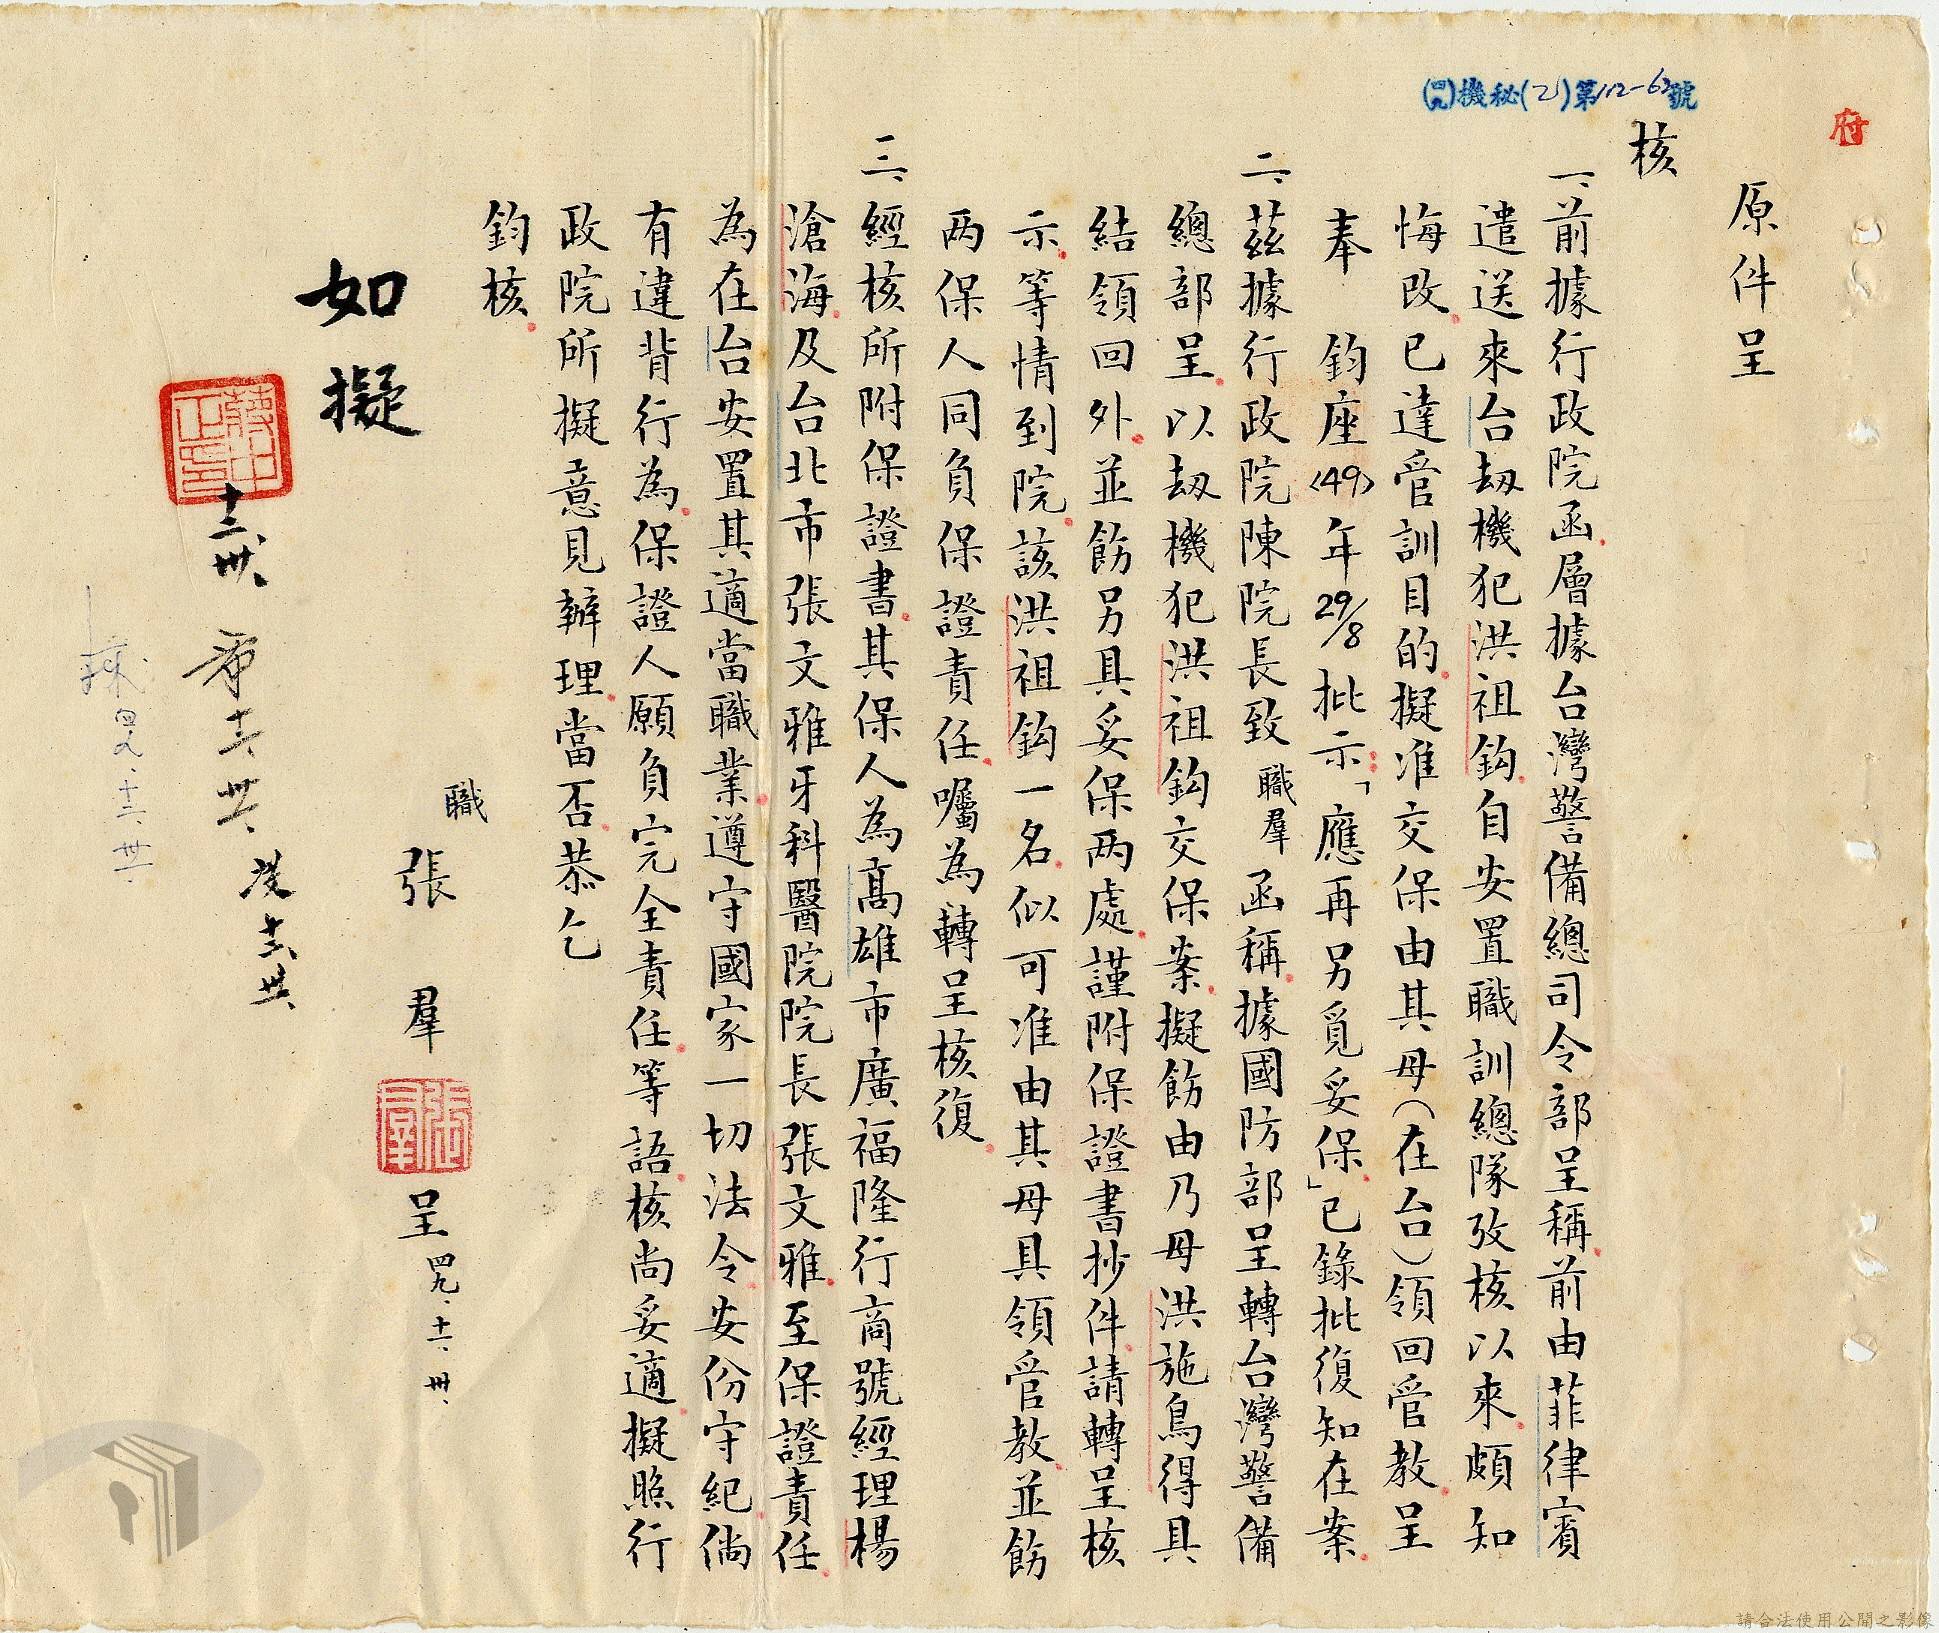 府
(四九)機秘(乙)第112-62號
原件呈
核
一、前據行政院函層據台灣警備總司令部呈稱前由菲律賓
遣送來台劫機犯洪祖鈎自安置職訓總隊攷核以來頗知
悔改已達管訓目的擬准交保由其母(在台)領回管教呈
奉　鈞座(49)年29/8批示「應再另覓妥保」已錄批復知在案
二、茲據行政院陳院長致職羣函稱據國防部呈轉台灣警備
總部呈以劫機犯洪祖鈎交保案擬飭由乃母洪施鳥得具
結領回外並飭另具妥保两處謹附保證書抄件請轉呈核
示等情到院該洪祖鈎一名似可准由其母具領管教並飭
两保人同負保證責任囑為轉呈核復
三、經核所附保證書其保人為高雄市廣福隆行商號經理楊
滄海及台北市張文雅牙科醫院院長張文雅至保證責任
為在台安置其適當職業遵守國家一切法令安份守紀倘
有違背行為保證人願負完全責任等語核尚妥適擬照行
政院所擬意見辦理當否恭乞
鈞核
職
張羣
張羣
呈四九、十一、卅、
如擬
蔣中正印
四九、十二、卅一、
請合法使用公開之影像